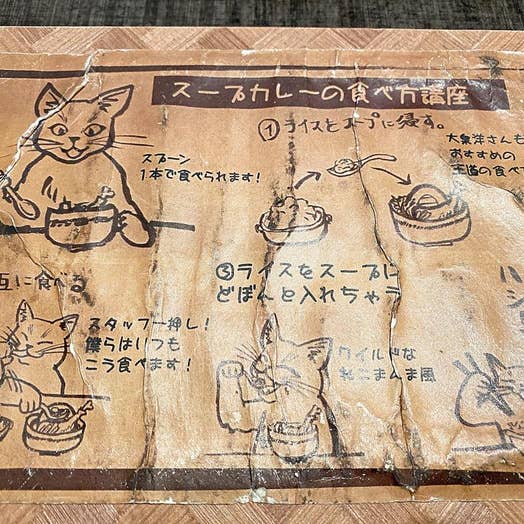 スープカレーの食べ方講座
①ライスをスープに浸す。
スプーン
1本で食べられます!
大泉洋さんも
おすすめの
王道の食べ
互に食べる
③ライスをスープに
どぼんと入れちゃう
スタッフ一押し!
僕らはいつも
こう食べます!
ワイルドな
ねこまんま風